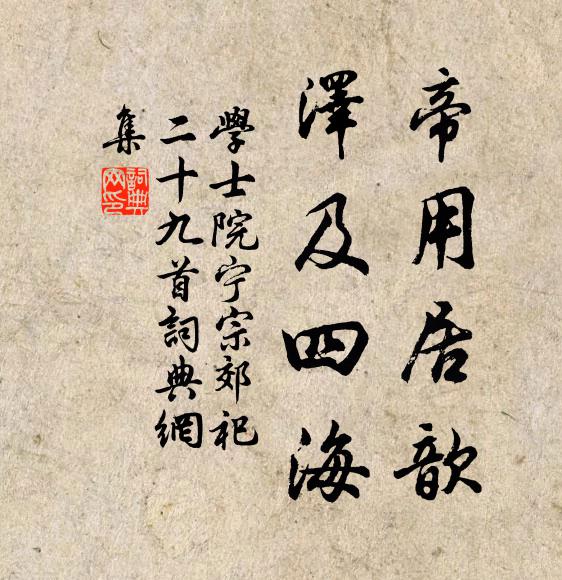 帝用居歆
澤及四海
學士院宁宗郊祀
二十九首詞典網
集
詞典
网印